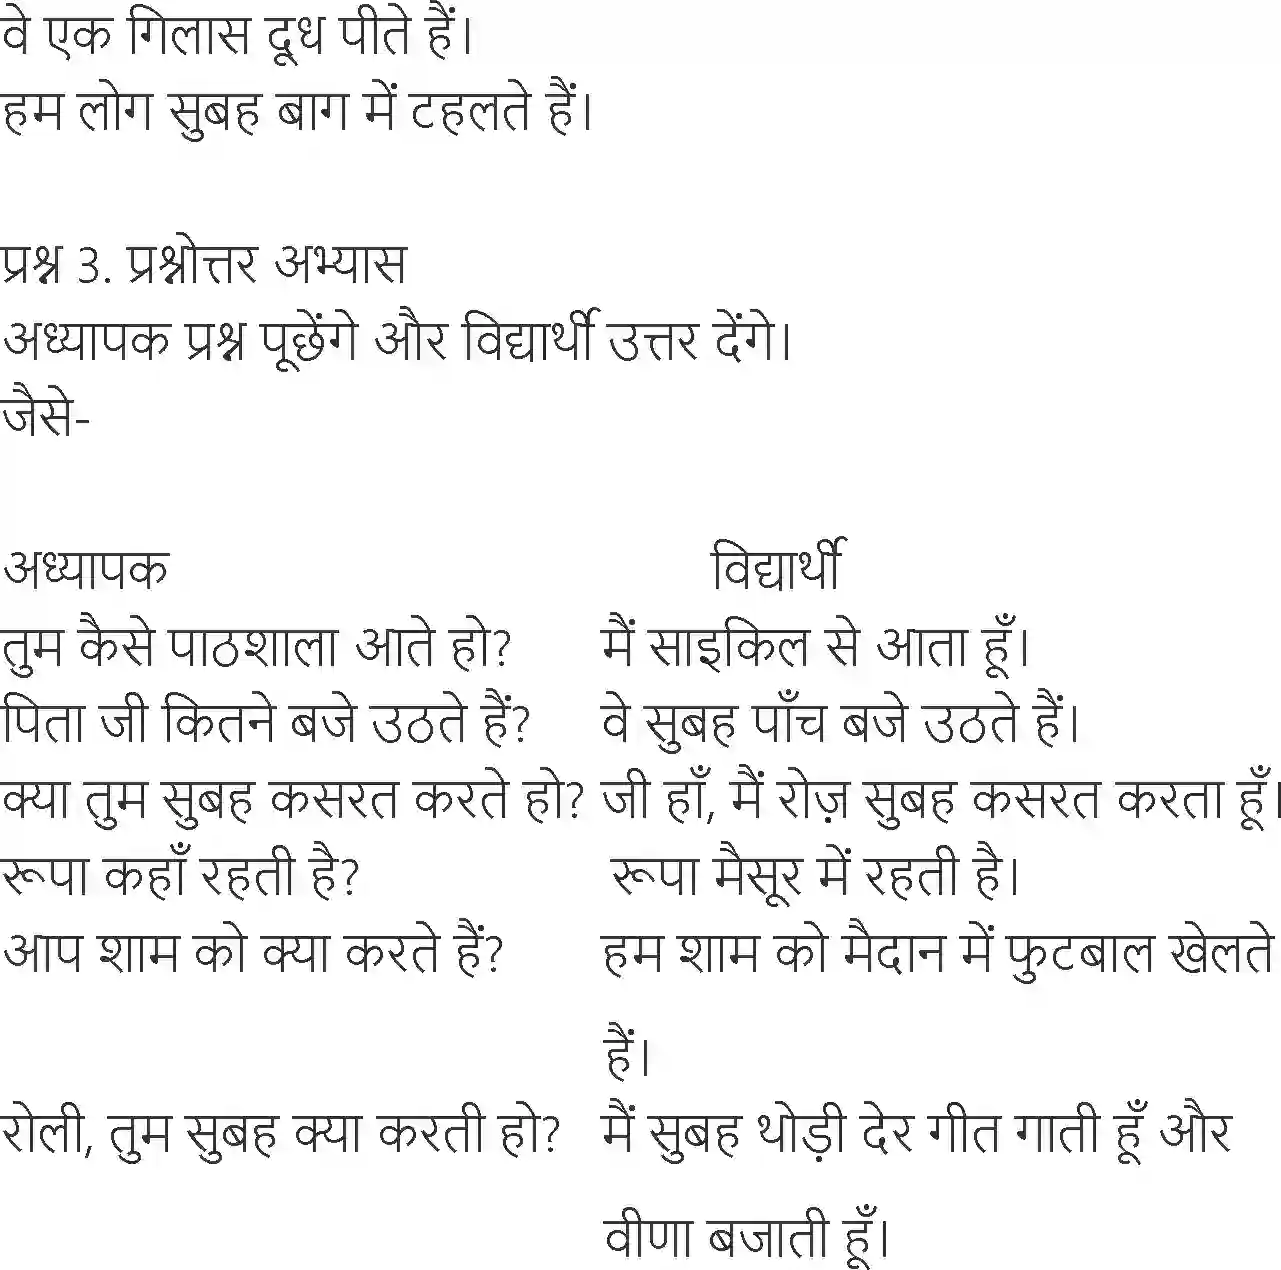 वे एक गिलास दूध पीते हैं।
हम लोग सुबह बाग में टहलते हैं।
प्रश्न 3. प्रश्नोत्तर अभ्यास
अध्यापक प्रश्न पूछेंगे और विद्यार्थी उत्तर देंगे।
जैसे-
अध्यापक विद्यार्थी
तुम कैसे पाठशाला आते हो? मैं साइकिल से आता हूँ।
पिता जी कितने बजे उठते हैं? वे सुबह पाँच बजे उठते हैं।
क्या तुम सुबह कसरत करते हो? जी हाँ, मैं रोज़ सुबह कसरत करता हूँ।
रूपा कहाँ रहती है? रूपा मैसूर में रहती है।
आप शाम को क्या करते हैं? हम शाम को मैदान में फुटबाल खेलते
हैं।
रोली, तुम सुबह क्या करती हो? मैं सुबह थोड़ी देर गीत गाती हूँ और
वीणा बजाती हूँ।